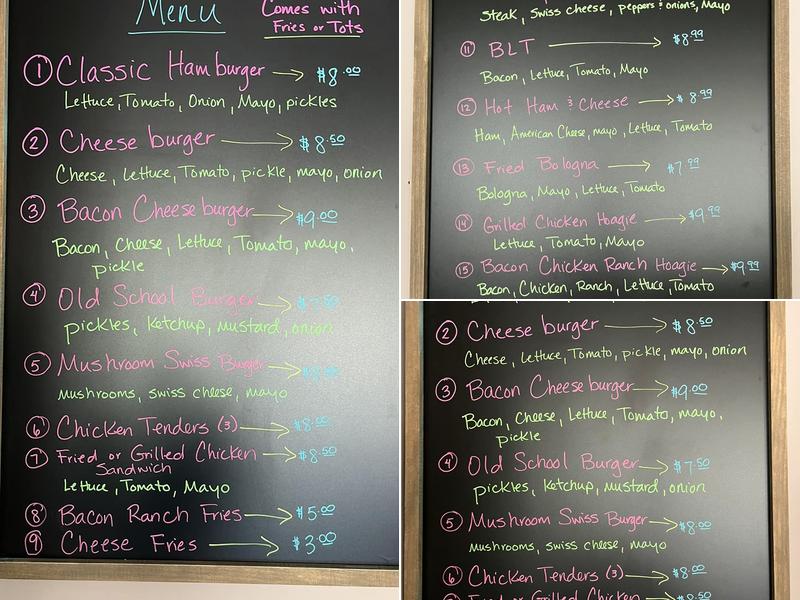 Menu
Comes with
Fries or Tots
1 Classic Hamburger → $8.00
Lettuce, Tomato, Onion, Mayo, pickles
2 Cheese burger → $8.50
Cheese, Lettuce, Tomato, pickle, mayo, onion
3 Bacon Cheese burger → $9.00
Bacon, Cheese, Lettuce, Tomato, mayo,
pickle
4 Old School Burger → $7.50
pickles, Ketchup, mustard, onion
5 Mushroom Swiss Burger → $8.00
mushrooms, swiss cheese, mayo
6 Chicken Tenders (3) → $8.00
7 Fried or Grilled Chicken → $8.50
Sandwich
Lettuce, Tomato, Mayo
8 Bacon Ranch Fries → $5.00
9 Cheese Fries → $3.00
Steak, Swiss cheese, peppers & onions, Mayo
11 BLT → $8.99
Bacon, Lettuce, Tomato, Mayo
12 Hot Ham & Cheese → $8.99
Ham, American Cheese, mayo, Lettuce, Tomato
13 Fried Bologna → $7.99
Bologna, Mayo, Lettuce, Tomato
14 Grilled Chicken Hoagie → $9.99
Lettuce, Tomato, Mayo
15 Bacon Chicken Ranch Hoagie → $9.99
Bacon, Chicken, Ranch, Lettuce, Tomato
2 Cheese burger → $8.50
Cheese, Lettuce, Tomato, pickle, mayo, onion
3 Bacon Cheese burger → $9.00
Bacon, Cheese, Lettuce, Tomato, mayo,
pickle
4 Old School Burger → $7.50
pickles, Ketchup, mustard, onion
5 Mushroom Swiss Burger → $8.00
mushrooms, swiss cheese, mayo
6 Chicken Tenders (3) → $8.00
Fried or Grilled Chicken → $8.50